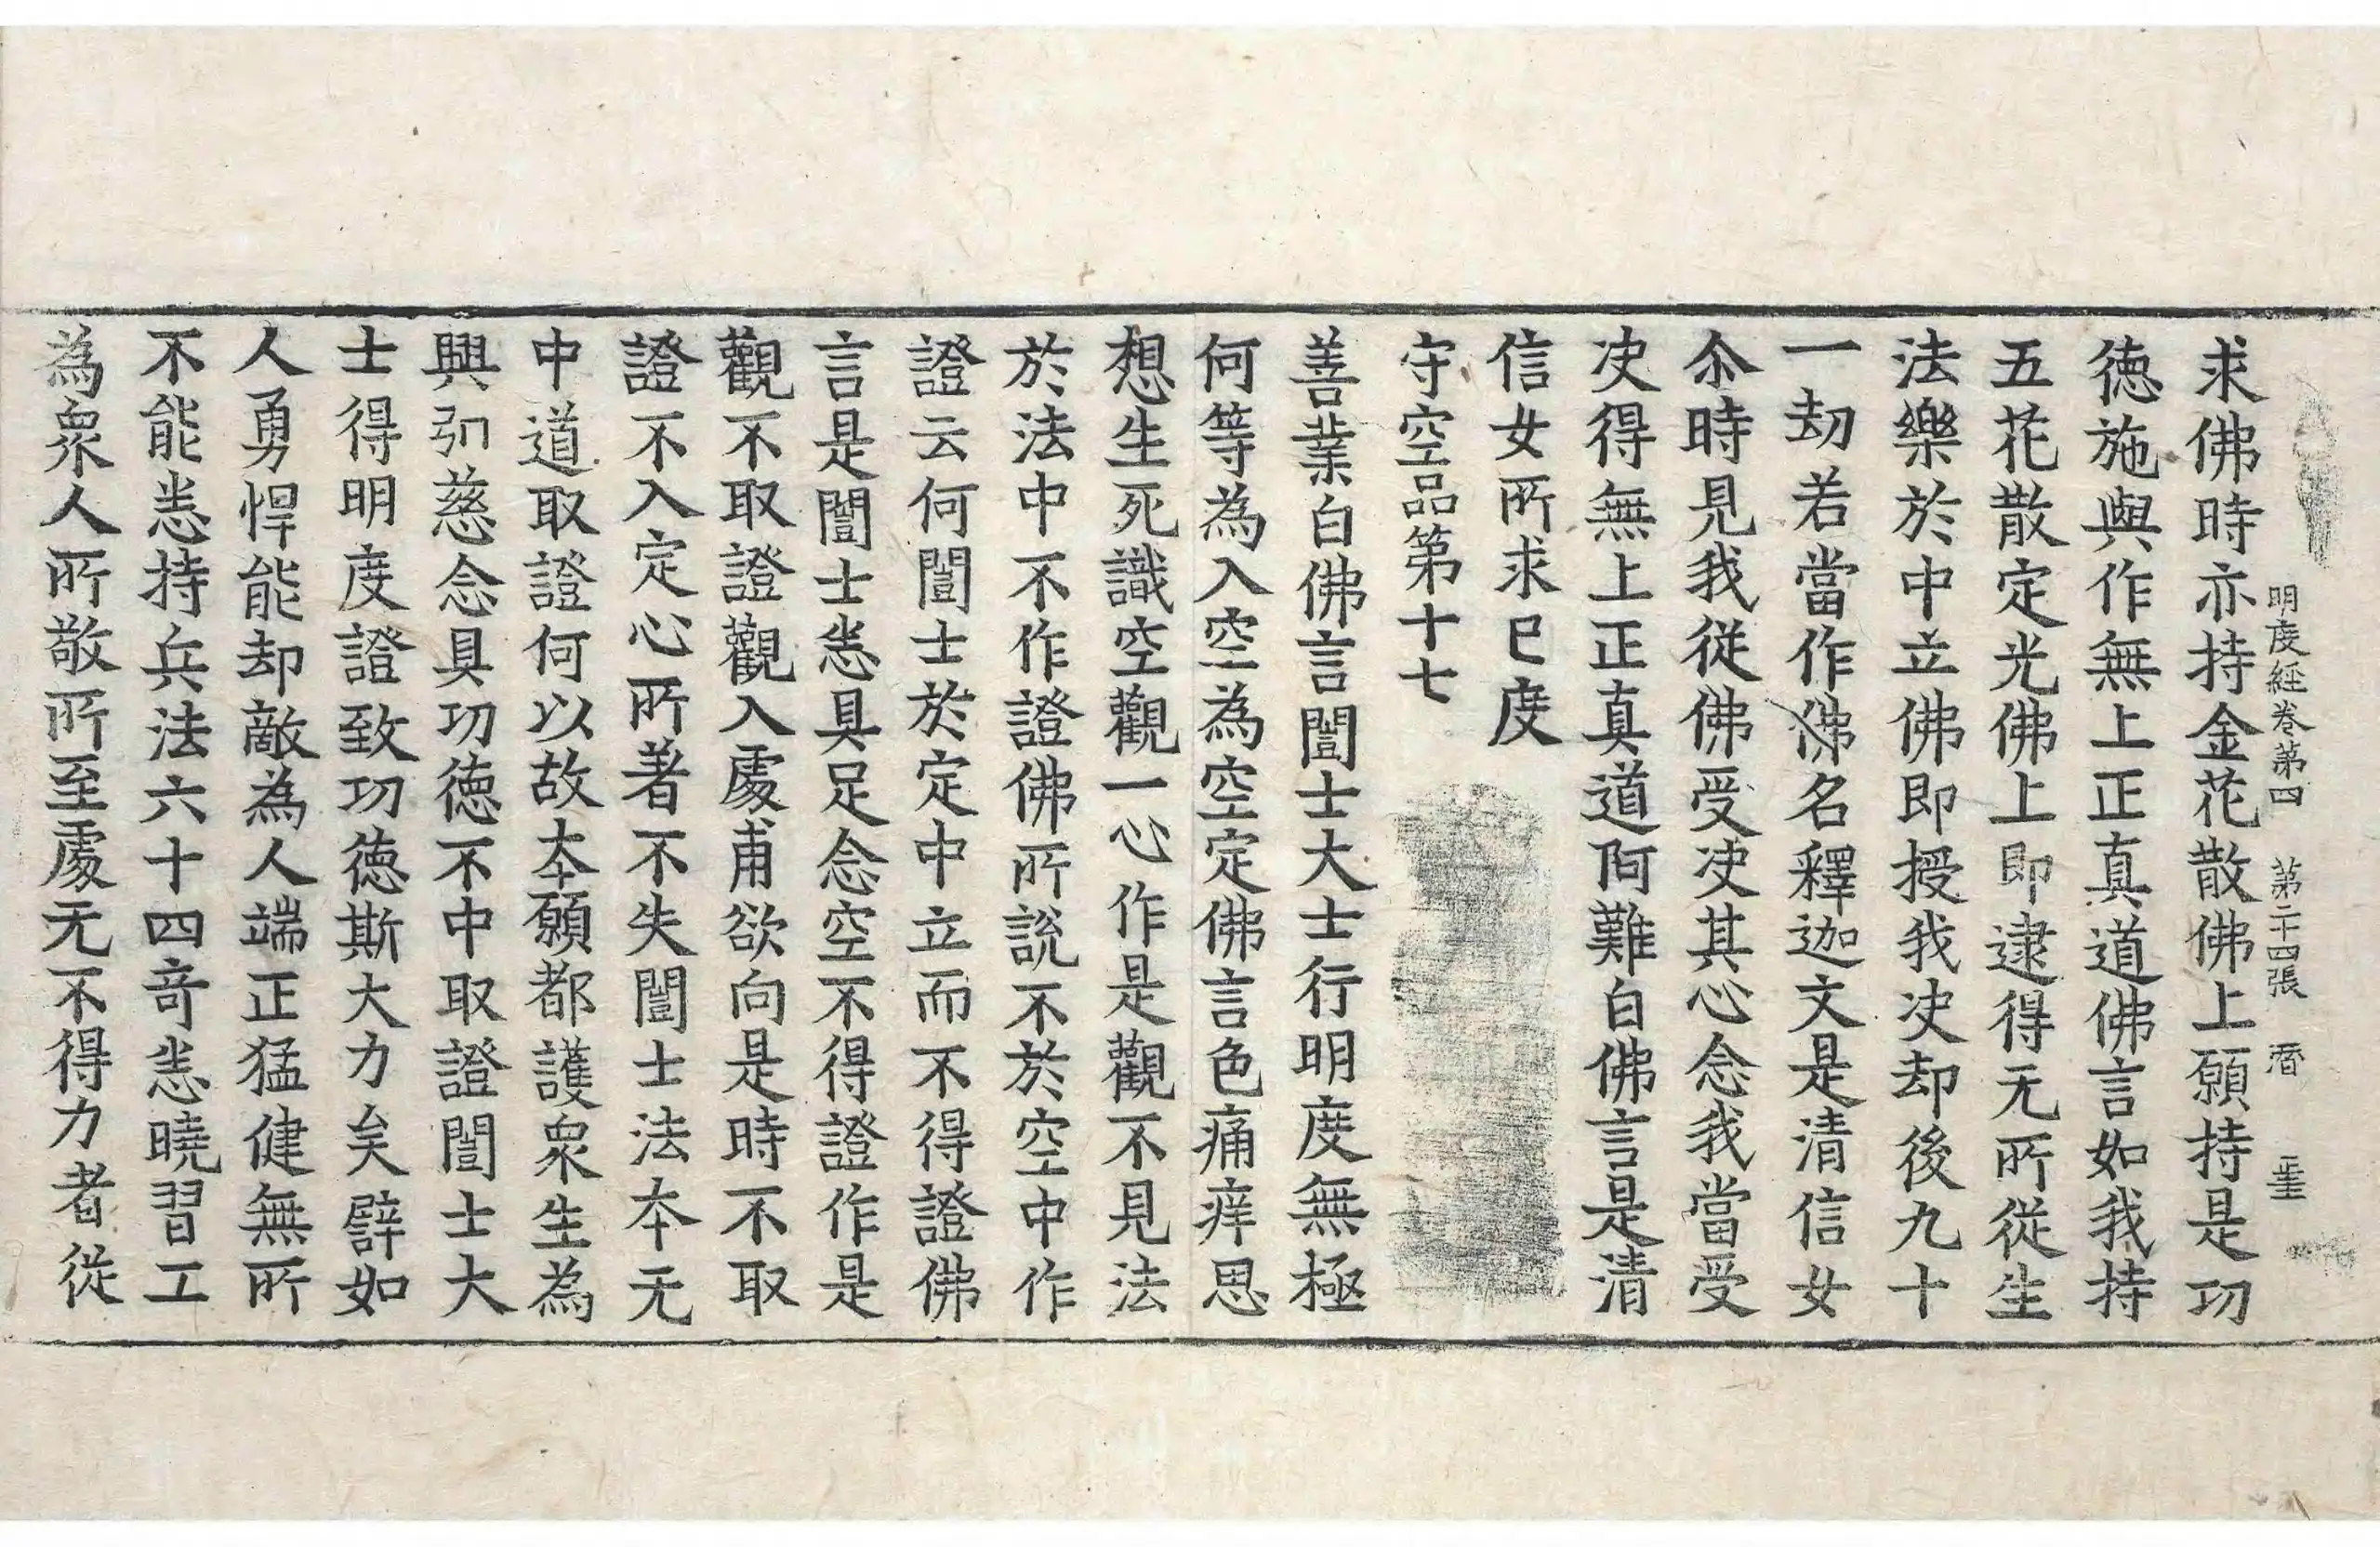 明度経巻第四 第二十四張 㫺
求佛時亦持金花散佛上願持是功
徳施與作無上正真道佛言如我持
五花散定光佛上即逮得无所從生
法樂於中立佛即授我决却後九十
一劫若當作佛名釋迦文是清信女
尒時見我從佛受决其心念我當受
决得無上正真道阿難白佛言是清
信女所求已度
守空品第十七
善業白佛言闓士大士行明度無極
何等為入空為空定佛言色痛痒思
想生死識空觀一心作是觀不見法
於法中不作證佛所說不於空中作
證云何闓士於定中立而不得證佛
言是闓士悉具足念空不得證作是
觀不取證觀入處甫欲向是時不取
證不入定心所著不失闓士法本无
中道取證何以故本願都護衆生為
興弘慈念具功徳不中取證闓士大
士得明度證致功徳斯大力矣譬如
人勇悍能却敵為人端正猛健無所
不能悉持兵法六十四竒悉曉習工
為衆人所敬所至處无不得力者從